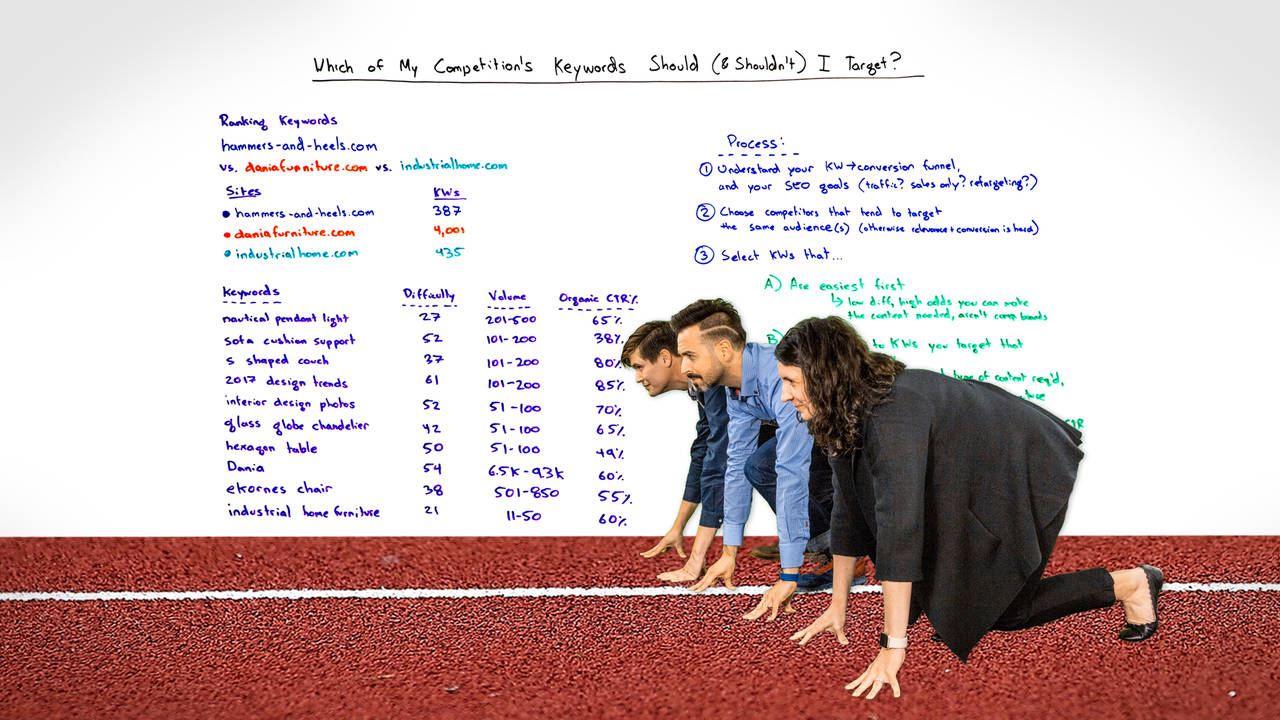 Which of My Competition's Keywords Should (& Shouldn't) I Target?
Ranking Keywords
hammers-and-heels.com
vs. daniafurniture.com vs. industrialhome.com
Sites KWs
hammers-and-heels.com 387
daniafurniture.com 4,001
industrialhome.com 435
Keywords Difficulty Volume Organic CTR%
nautical pendant light 27 201-500 65%
sofa cushion support 52 101-200 38%
s shaped couch 37 101-200 80%
2017 design trends 61 101-200 85%
interior design photos 52 51-100 70%
glass globe chandelier 42 51-100 65%
hexagon table 50 51-100 49%
Dania 54 6.5K-9.3K 60%
ekornes chair 38 501-850 55%
industrial home furniture 21 11-50 60%
Process:
① Understand your KW→conversion funnel,
and your SEO goals (traffic? sales only? retargeting?)
② Choose competitors that tend to target
the same audience(s) (otherwise relevance + conversion is hard)
③ Select KWs that...
A) Are easiest first
↳ low diff, high odds you can make
the content needed, aren't comp brands
B)
to KWs you target that
type of content req'd,
CTR